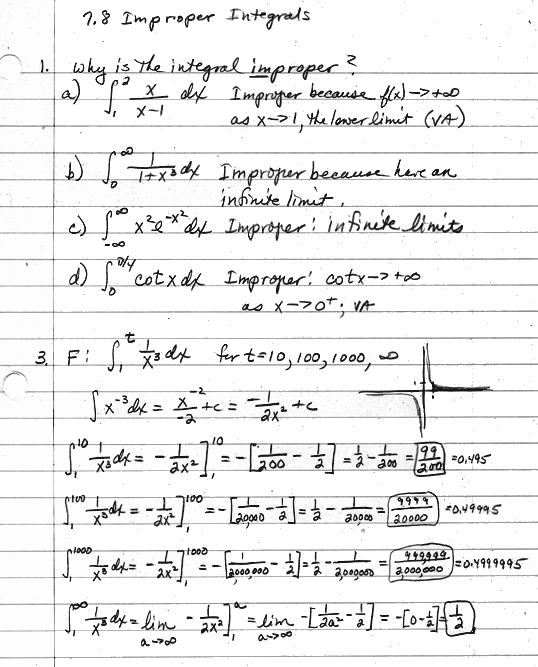 7.8 Improper Integrals
1. Why is the integral improper?
a) ∫₁² x/(x-1) dx Improper because f(x) → +∞
as x→1, the lower limit (VA)
b) ∫₀^∞ 1/(1+x³) dx Improper because have an
infinite limit.
c) ∫₋∞^∞ x²e^(-x²) dx Improper: infinite limits
d) ∫₀^(π/4) cot x dx Improper: cot x → +∞
as x→0⁺; VA
3. F: ∫₁^t 1/x³ dx for t=10, 100, 1000, ∞
∫ x⁻³ dx = x⁻²/-2 + c = -1/(2x²) + c
∫₁^10 1/x³ dx = -1/(2x²)]₁^10 = -[1/200 - 1/2] = 1/2 - 1/200 = 99/200 = 0.495
∫₁^100 1/x³ dx = -1/(2x²)]₁^100 = -[1/20000 - 1/2] = 1/2 - 1/20000 = 9999/20000 = 0.49995
∫₁^1000 1/x³ dx = -1/(2x²)]₁^1000 = -[1/2000000 - 1/2] = 1/2 - 1/2000000 = 999,999/2,000,000 = 0.4999995
∫₁^∞ 1/x³ dx = lim a→∞ -1/(2x²)]₁^a = lim a→∞ -[1/(2a²) - 1/2] = -[0 - 1/2] = 1/2